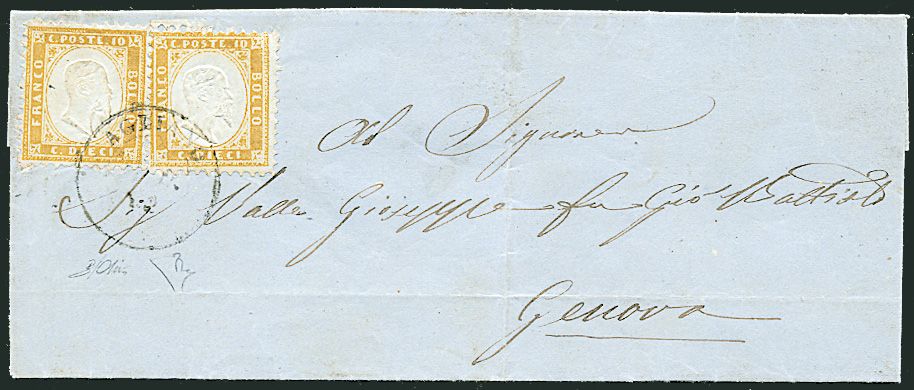 C. POSTE 10 C. POSTE 10
FRANCO BOLLO FRANCO BOLLO
C. DIECI C. DIECI
Al Signore
Sig Valle Giuseppe fu Gio Battista
Genova